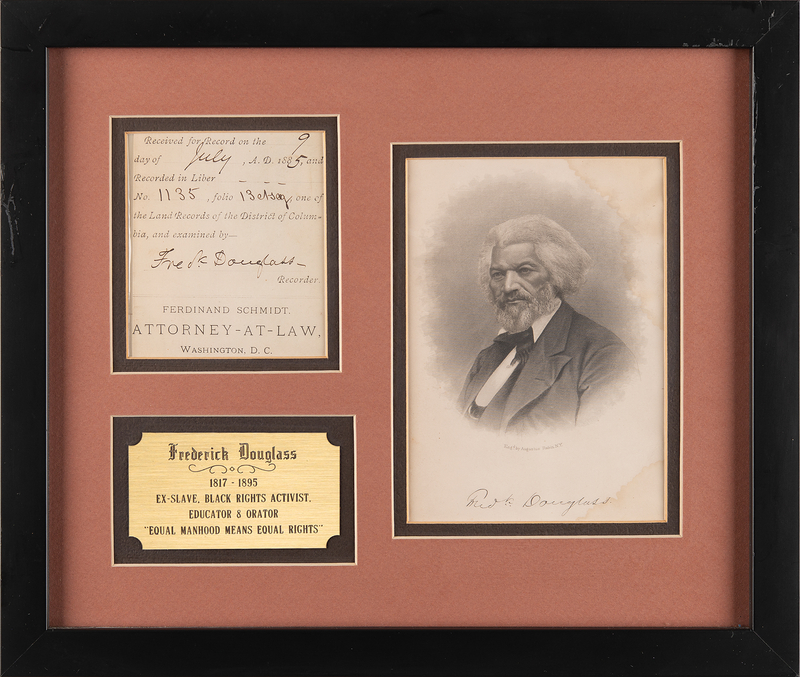 Received for Record on the 9
day of July, A. D. 1885, and
Recorded in Liber
No. 1135, folio 13 et seq, one of
the Land Records of the District of Colum-
bia, and examined by—
Fredk Douglass—
Recorder.
FERDINAND SCHMIDT,
ATTORNEY-AT-LAW,
WASHINGTON, D. C.
Frederick Douglass
1817 - 1895
EX-SLAVE, BLACK RIGHTS ACTIVIST,
EDUCATOR & ORATOR
"EQUAL MANHOOD MEANS EQUAL RIGHTS"
Fredk. Douglass.